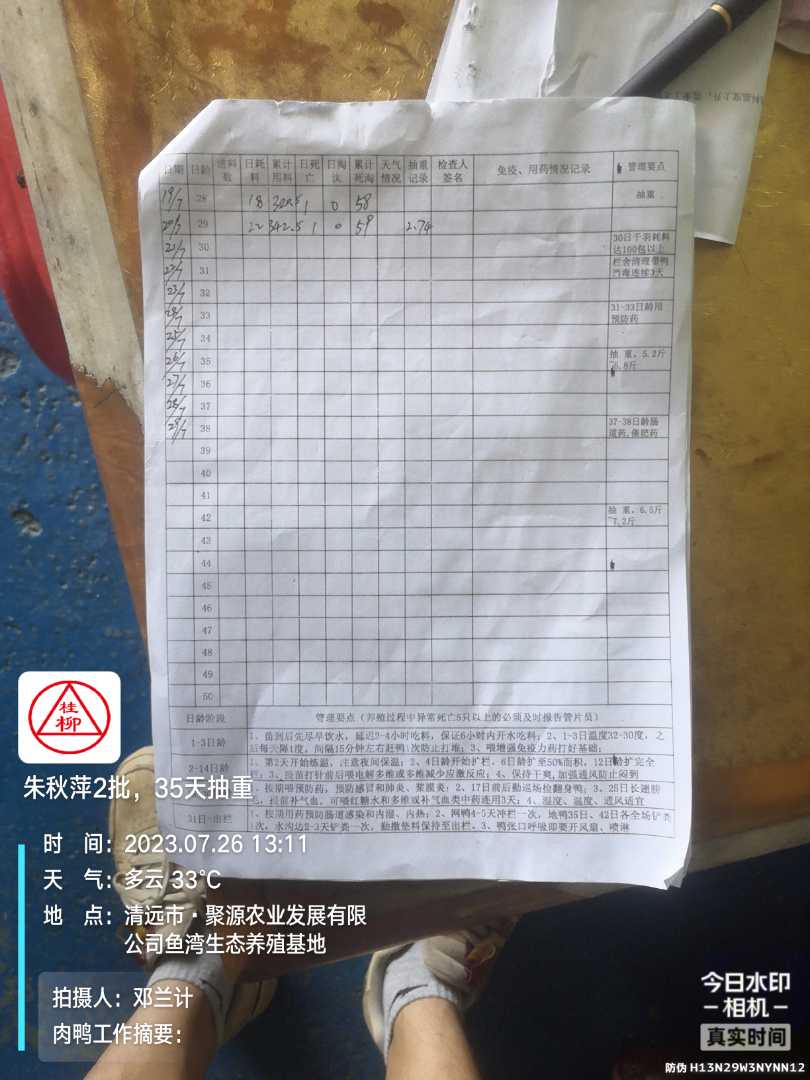 日期 日龄 进料数 日耗料 累计用料 日死亡 日淘汰 累计死淘 天气情况 抽重记录 检查人签名 免疫、用药情况记录 管理要点
19/7 28 18 320.5 1 0 58 抽重
20/7 29 22 342.5 1 0 59 2.74
21/7 30 30日千羽耗料达100包以上
22/7 31 栏舍清理带鸭消毒连续3天
23/7 32
24/7 33 31-33日龄用预防药
25/7 34
26/7 35 抽重，5.2斤~5.8斤
27/7 36
28/7 37
29/7 38 37-38日龄肠道药,催肥药
39
40
41
42 抽重，6.5斤~7.2斤
43
44
45
46
47
48
49
50
日龄阶段 管理要点（养殖过程中异常死亡5只以上的必须及时报告管片员）
1-3日龄 1、苗到后先尽早饮水，延迟2-4小时吃料，保证6小时内开水吃料；2、1-3日温度32-30度，之后每天降1度，间隔15分钟左右赶鸭1次防止打堆；3、喂增强免疫力药打好基础；
2-14日龄 1、第2天开始炼温，注意夜间保温；2、4日龄开始扩栏，6日龄扩至50%面积，12日龄扩完全栏；3、疫苗打针前后喂电解多维或多维减少应激反应；4、保持干爽,加强通风防止闷到
1、按期喂预防药，预防感冒和肺炎、浆膜炎；2、17日前后勤巡场捡翻身鸭；3、25日长翅膀毛，提前补气血，可喂红糖水和多维或补气血类中药连用3天；4、湿度、温度、通风适宜
31日-出栏 1、按期用药预防肠道感染和内湿、内热；2、网鸭4-5天冲栏一次，地鸭35日、42日各全场铲粪1次，水沟达2-3天铲粪一次，勤撒垫料保持至出栏。3、鸭张口呼吸即要开风扇、喷淋
桂柳
朱秋萍2批，35天抽重
时 间：2023.07.26 13:11
天 气：多云 33℃
地 点：清远市·聚源农业发展有限公司鱼湾生态养殖基地
拍摄人：邓兰计
肉鸭工作摘要：
今日水印
-相机-
真实时间
防伪 H13N29W3NYNN12